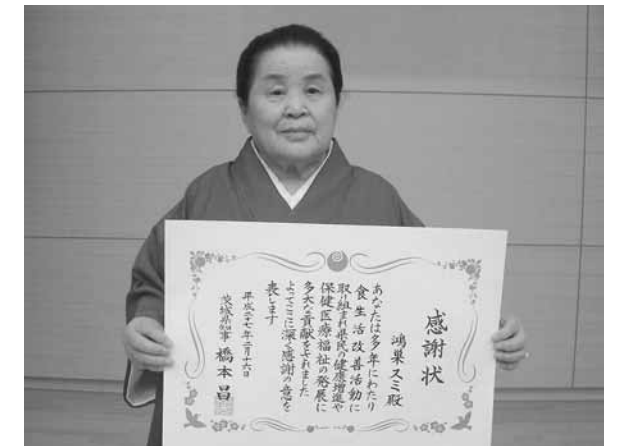 感謝状
鴻巣スミ殿
あなたは多年にわたり
食生活改善活動に
取り組まれ県民の健康増進や
保健医療福祉の発展に
多大な貢献をされました
よってここに深く感謝の意を
表します
平成二十七年二月十六日
茨城県知事 橋本昌